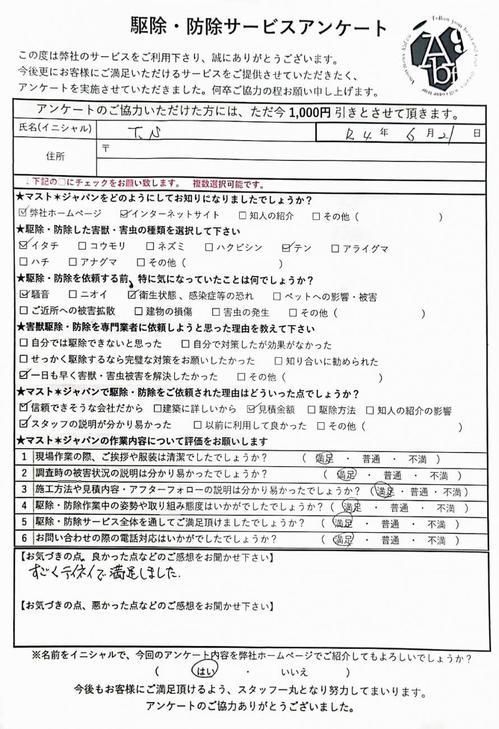 駆除・防除サービスアンケート
この度は弊社のサービスをご利用下さり、誠にありがとうございます。
今後更にお客様にご満足いただけるサービスをご提供させていただきたく、
アンケートを実施させていただきました。何卒ご協力の程お願い申し上げます。
アンケートのご協力いただけた方には、ただ今1,000円引きとさせて頂きます。
氏名(イニシャル) T.N R.4年 6月21日
住所 〒
↓下記の□にチェックをお願い致します。 複数選択可能です。
★マスト＊ジャパンをどのようにしてお知りになりましたでしょうか？
☑弊社ホームページ ☑インターネットサイト □知人の紹介 □その他（ ）
★駆除・防除した害獣・害虫の種類を選択して下さい
☑イタチ □コウモリ □ネズミ □ハクビシン ☑テン □アライグマ
□ハチ □アナグマ □その他（ ）
★駆除・防除を依頼する前、特に気になっていたことは何でしょうか？
☑騒音 □ニオイ ☑衛生状態、感染症等の恐れ □ペットへの影響・被害
□ご近所への被害拡散 □建物の損傷 □害虫の発生 □その他（ ）
★害獣駆除・防除を専門業者に依頼しようと思った理由を教えて下さい
□自分では駆除できないと思った □自分で対策したが効果がなかった
□せっかく駆除するなら完璧な対策をお願いしたかった □知り合いに勧められた
☑一日も早く害獣・害虫被害を解決したかった □その他（ ）
★マスト＊ジャパンで駆除・防除をご依頼された理由はどういった点でしょうか？
☑信頼できそうな会社だから □建築に詳しいから ☑見積金額 □駆除方法 □知人の紹介の影響
☑スタッフの説明が分かり易かった □以前に利用して良かった □その他（ ）
★マスト＊ジャパンの作業内容について評価をお願いします
1 現場作業の際、ご挨拶や服装は清潔でしたでしょうか？ （ 満足 ・ 普通 ・ 不満 ）
2 調査時の被害状況の説明は分かり易かったでしょうか？ （ 満足 ・ 普通 ・ 不満 ）
3 施工方法や見積内容・アフターフォローの説明は分かり易かったでしょうか？（ 満足 ・ 普通 ・ 不満 ）
4 駆除・防除作業中の姿勢や取り組み態度はいかがでしたでしょうか？（ 満足 ・ 普通 ・ 不満 ）
5 駆除・防除サービス全体を通してご満足頂けましたでしょうか？ （ 満足 ・ 普通 ・ 不満 ）
6 お問い合わせの際の電話対応はいかがでしたでしょうか？ （ 満足 ・ 普通 ・ 不満 ）
【お気づきの点、良かった点などのご感想をお聞かせ下さい】
すごくテイネイで満足しました.
【お気づきの点、悪かった点などのご感想をお聞かせ下さい】
※名前をイニシャルで、今回のアンケート内容を弊社ホームページでご紹介してもよろしいでしょうか？
（ はい ・ いいえ ）
今後もお客様にご満足頂けるよう、スタッフ一丸となり努力してまいります。
アンケートのご協力ありがとうございました。